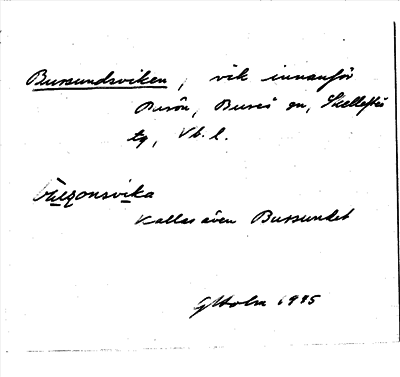 Bursundsviken, vik innanför
Burön, Bureå sn, Skellefteå
tg, Vb. l.
Kallas även Bursundet
GHolm 1945